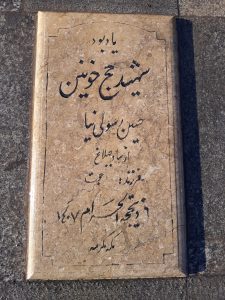 یادبود
شهید حج خونین
حسین رسولی نیا
فرزند: حجت
۶ ذیحجة الحرام ۱۴۰۷
مکه مکرمه